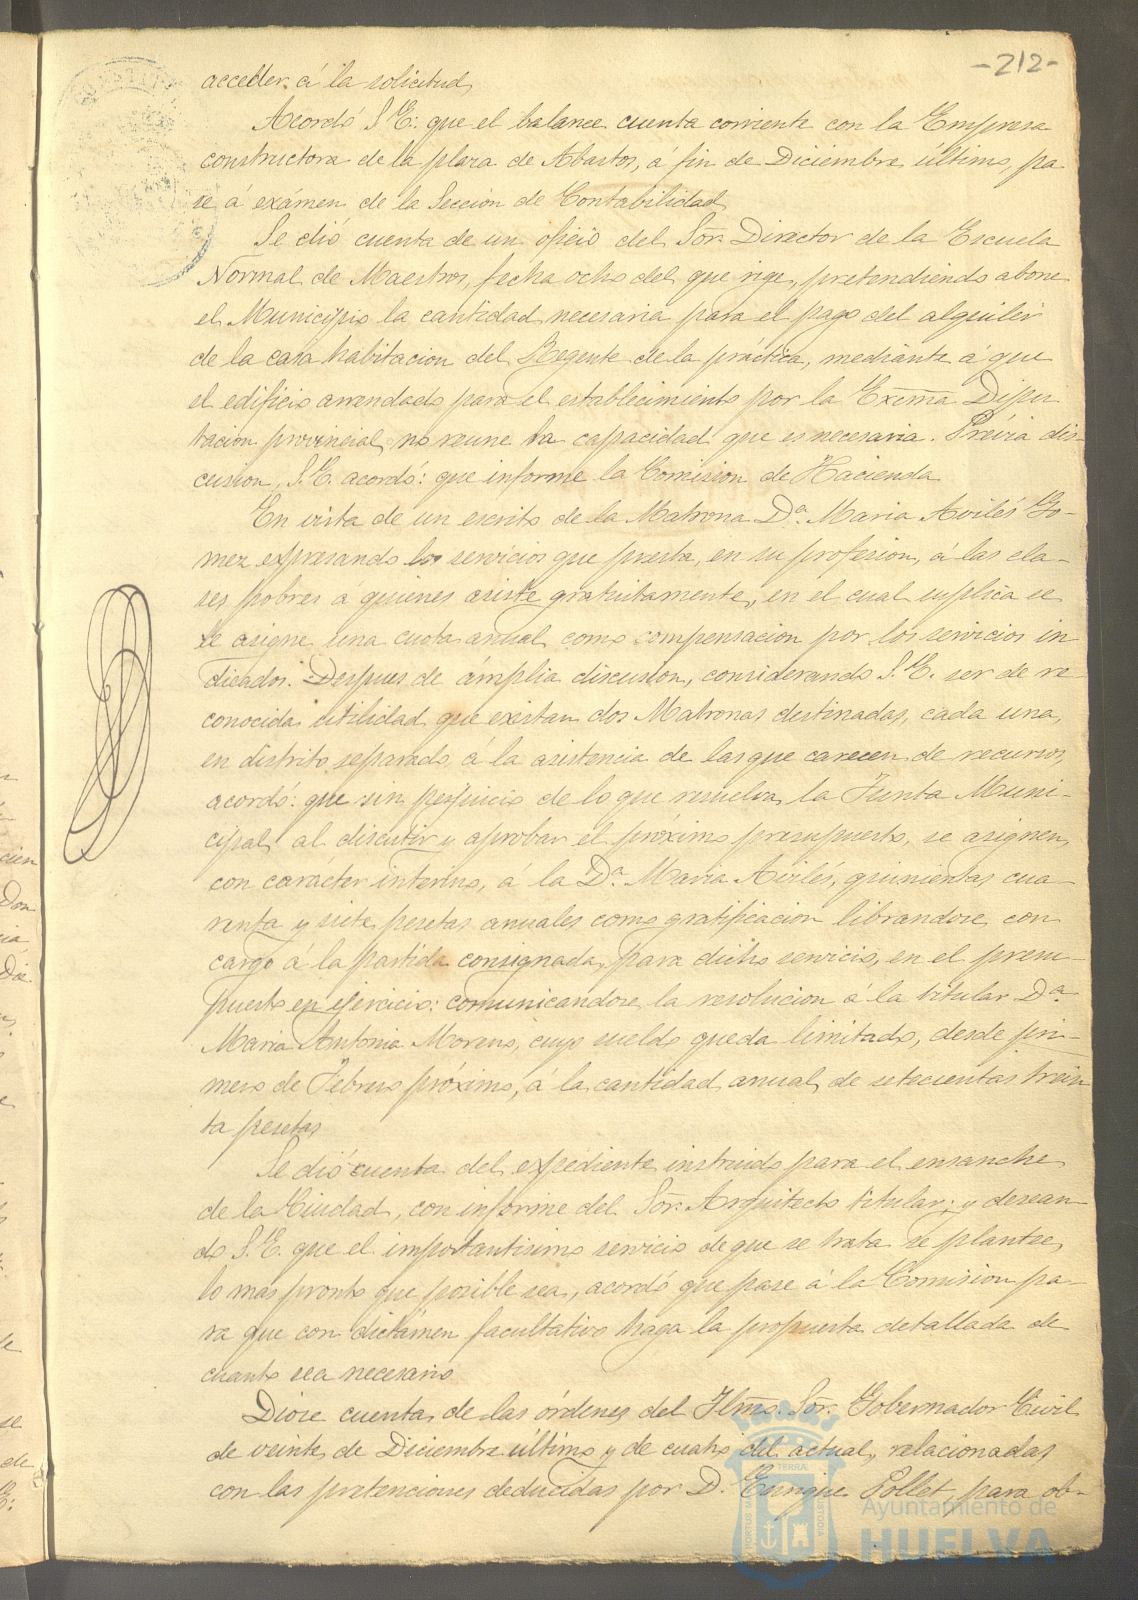 -212-
acceder á la solicitud
Acordó S. E: que el balance cuenta corriente con la Empresa
constructora de la plaza de Abastos, á fin de Diciembre último, pa-
se á exámen de la Sección de Contabilidad
Se dió cuenta de un oficio del Sor. Director de la Escuela
Normal de Maestros, fecha ocho del que rige, pretendiendo abone
el Municipio la cantidad necesaria para el pago del alquiler
de la casa habitacion del Regente de la práctica, mediante á que
el edificio arrendado para el establecimiento por la Excma Dipu
tacion provincial no reune la capacidad que es necesaria. Prévia dis-
cusion, S. E. acordó: que informe la Comision de Hacienda
En vista de un escrito de la Matrona Da. Maria Avilés Go-
mez expresando los servicios que presta, en su profesion, á las cla-
ses pobres á quienes asiste gratuitamente, en el cual suplica se
le asigne una cuota anual como compensacion por los servicios in-
dicados. Despues de ámplia discusion, considerando S. E. ser de re-
conocida utilidad que existan dos Matronas destinadas, cada una,
en distrito separado á la asistencia de las que carecen de recursos,
acordó: que sin perjuicio de lo que resuelva la Junta Muni-
cipal al discutir y aprobar el próximo presupuesto, se asignen,
con carácter interino, á la Da. Maria Avilés, quinientas cua-
renta y siete pesetas anuales como gratificacion librandose con
cargo á la partida consignada, para dicho servicio, en el presu-
puesto en ejercicio: comunicandose la resolucion á la titular Da.
Maria Antonia Moreno, cuyo sueldo queda limitado, desde pri-
mero de Febrero próximo, á la cantidad anual de setecientas trein
ta pesetas
Se dió cuenta del expediente instruido para el ensanche
de la Ciudad, con informe del Sor. Arquitecto titular; y desean-
do S. E. que el importantisimo servicio de que se trata se plantee,
lo mas pronto que posible sea, acordó que pase á la Comision pa-
ra que con dictámen facultativo haga la propuesta detallada de
cuanto sea necesario
Diose cuenta de las órdenes del Ilmo. Sor. Gobernador Civil
de veinte de Diciembre último y de cuatro del actual, relacionadas
con las pretenciones deducidas por D. Enrique Pollet para ob-
Ayuntamiento de
HUELVA